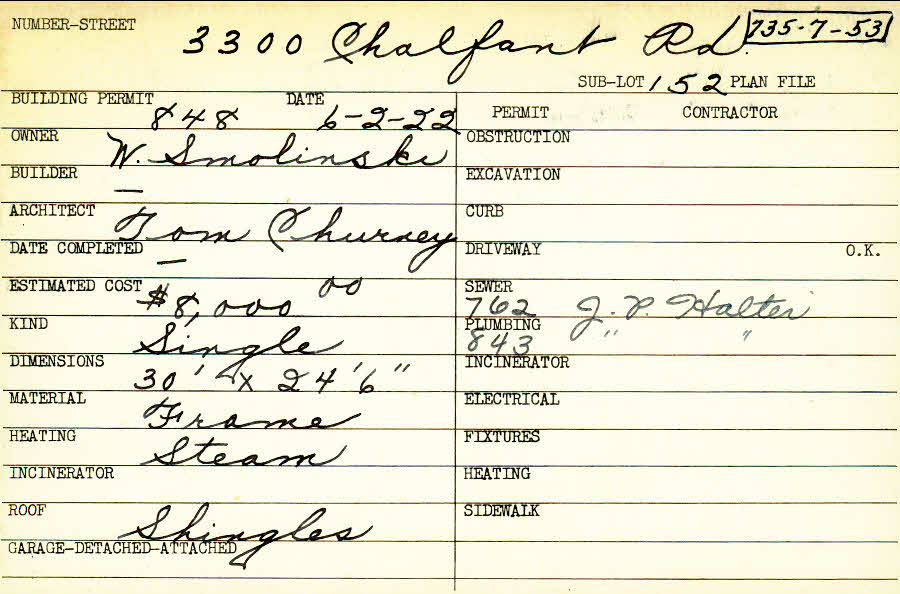 NUMBER-STREET 3300 Chalfant Rd. 735-7-53
SUB-LOT 152 PLAN FILE
BUILDING PERMIT 848 DATE 6-2-22
OWNER W. Smolinski
BUILDER —
ARCHITECT Tom Churney
DATE COMPLETED —
ESTIMATED COST $8,000 00
KIND Single
DIMENSIONS 30' x 24'6"
MATERIAL Frame
HEATING Steam
INCINERATOR
ROOF Shingles
GARAGE-DETACHED-ATTACHED
PERMIT CONTRACTOR
OBSTRUCTION
EXCAVATION
CURB
DRIVEWAY O.K.
SEWER 762 J. P. Halter
PLUMBING 843 " "
INCINERATOR
ELECTRICAL
FIXTURES
HEATING
SIDEWALK